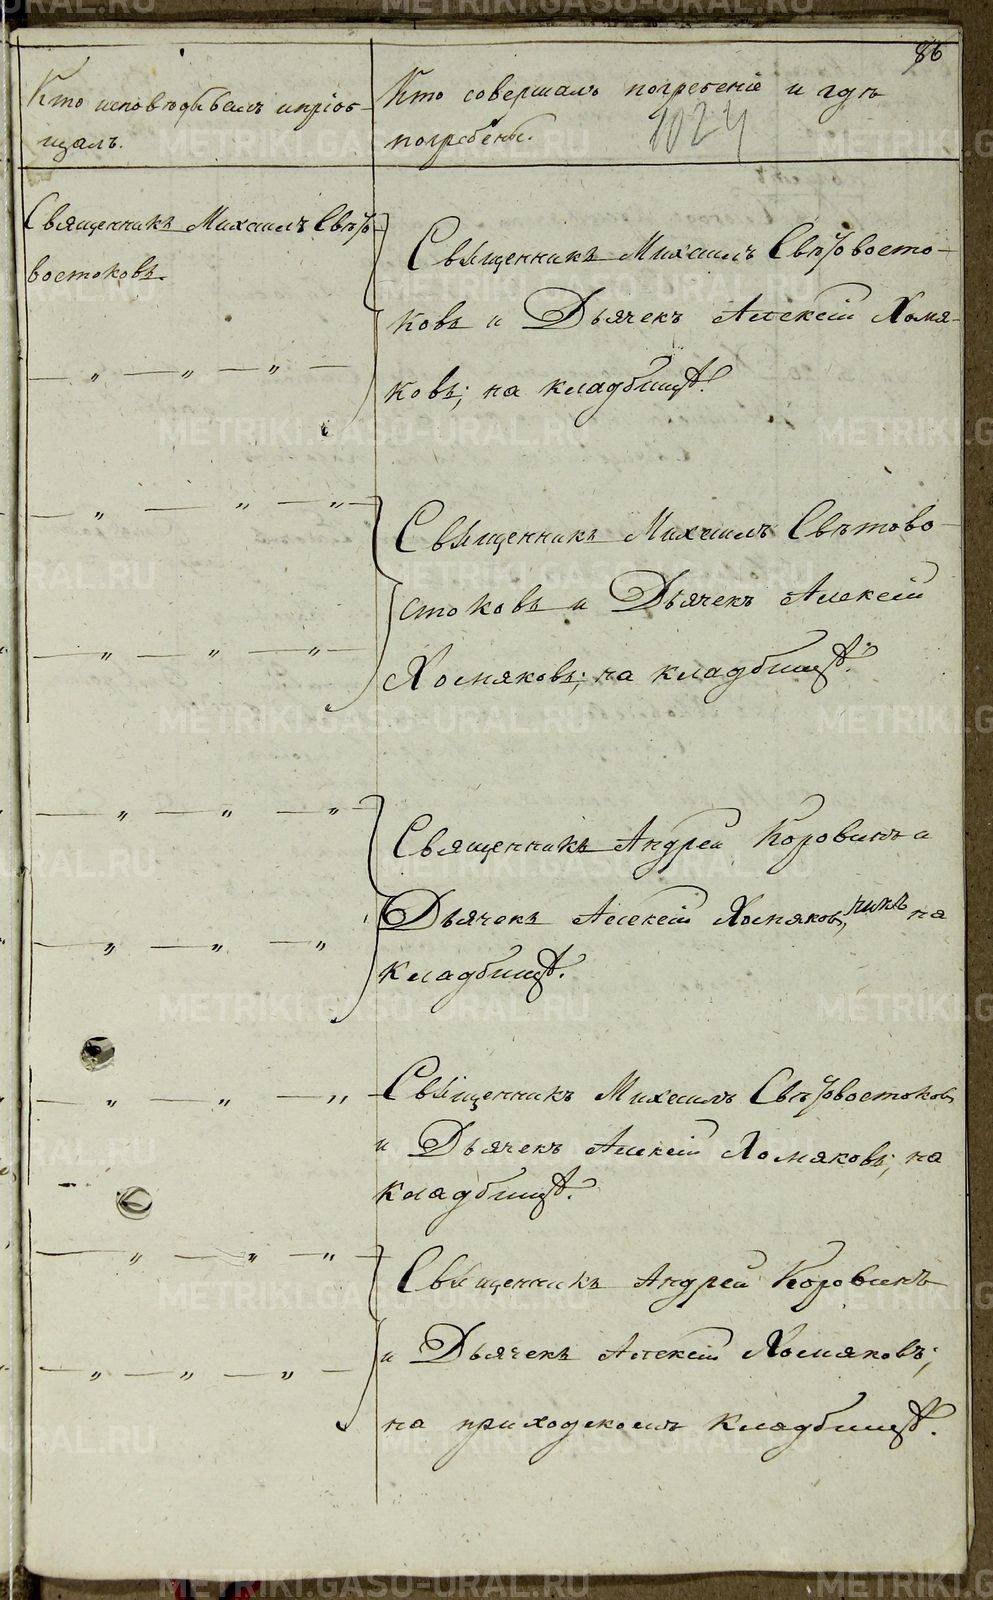 86
Кто исповѣдывалъ и пріоб-
щалъ.
Кто совершалъ погребеніе и гдѣ
погребены.
1024
Священникъ Михаилъ Свѣто-
востоковъ.
Священникъ Михаилъ Свѣтовосто-
ковъ и Дьячекъ Алексій Хомя-
ковъ; на кладбищѣ.
— „ — „ — „ —
— „ — „ — „ —
Священникъ Михаилъ Свѣтово-
стоковъ и Дьячекъ Алексій
Хомяковъ; на кладбищѣ.
— „ — „ — „ —
— „ — „ — „ —
Священникъ Андрей Коровинъ и
Дьячекъ Алексій Хомяковъ, на
кладбищѣ.
— „ — „ — „
— „ — „ — „
Священникъ Михаилъ Свѣтовостоковъ
и Дьячекъ Алексій Хомяковъ; на
кладбищѣ.
— „ — „ — „ —
Священникъ Андрей Коровинъ
и Дьячекъ Алексій Хомяковъ;
на приходскомъ кладбищѣ.
— „ — „ — „ —
METRIKI.GASO-URAL.RU